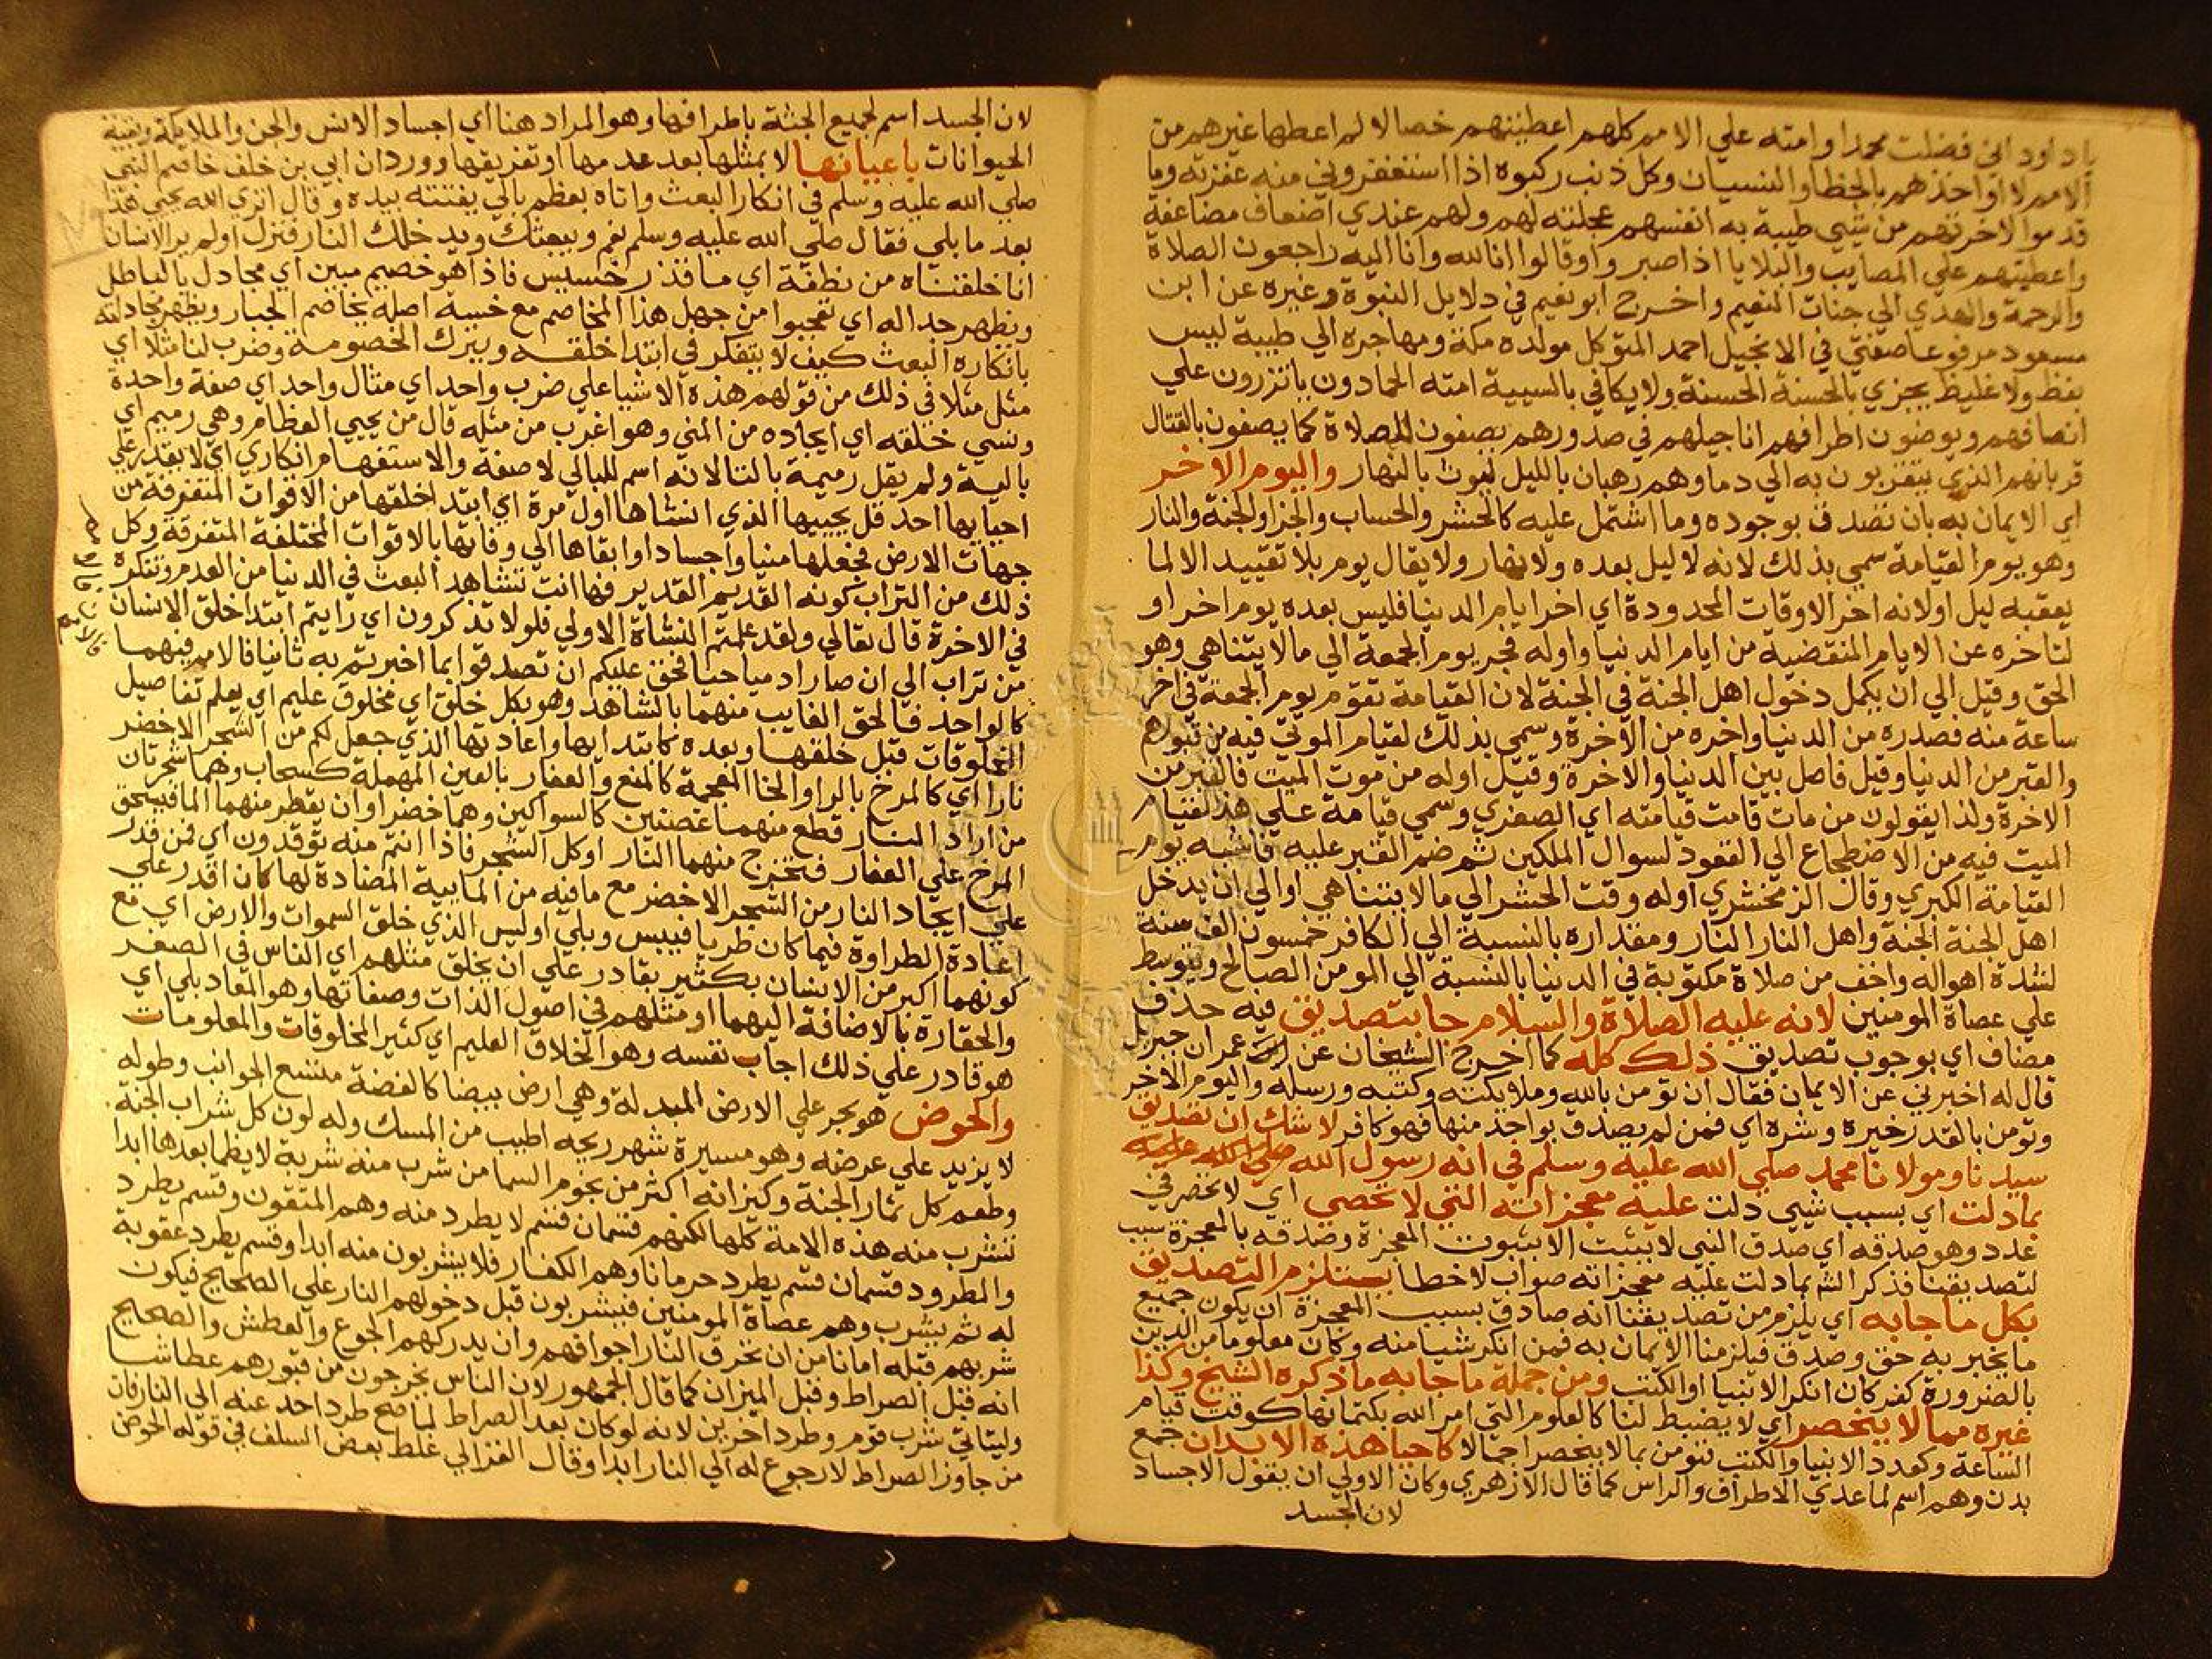 يا داود اني فضلت محمدا وامته علي الامم كلهم اعطيتهم خصالا لم اعطها غيرهم من
الامم لا اواخذهم بالخطا والنسيان وكل ذنب ركبوه اذا استغفروني منه غفرته وما
قدموا لاخرتهم من شيي طيبة به انفسهم عجلته لهم ولهم عندي اضعاف مضاعفة
واعطيتهم علي المصايب والبلايا اذا صبروا وقالوا انا لله وانا اليه راجعون الصلاة
والرحمة والهدي الي جنات النعيم واخرج ابو نعيم في دلايل النبوة وغيره عن ابن
مسعود مرفوعا صفتي في الانجيل احمد المتوكل مولده مكة ومهاجره الي طيبة ليس
بفظ ولا غليظ يجزي بالحسنة الحسنة ولا يكافي بالسيية امته الحمادون ياتزرون علي
انصافهم ويوضون اطرافهم اناجيلهم في صدورهم يصفون للصلاة كما يصفون للقتال
قربانهم الذي يتقربون به الي دماوهم رهبان بالليل ليوث بالنهار واليوم الاخر
اي الايمان به بان تصدق بوجوده وما اشتمل عليه كالحشر والحساب والجزا والجنة والنار
وهو يوم القيامة سمي بذلك لانه لا ليل بعده ولا نهار ولا يقال يوم بلا تقييد الا لما
يعقبه ليل اولانه اخر الاوقات المحدودة اي اخر ايام الدنيا فليس بعده يوم اخر او
لتاخره عن الايام المنقضية من ايام الدنيا واوله فجر يوم الجمعة الي ما لا يتناهي وهو
الحق وقيل الي ان يكمل دخول اهل الجنة في الجنة لان القيامة تقوم يوم الجمعة في اخر
ساعة منه فصدره من الدنيا واخره من الاخرة وسمي بذلك لقيام الموتي فيه من قبورهم
والقبر من الدنيا وقيل فاصل بين الدنيا والاخرة وقيل اوله من موت الميت فالقبر من
الاخرة ولذا يقولون من مات قامت قيامته اي الصغري وسمي قيامة علي هذا لقيام
الميت فيه من الاضطجاع الي القعود لسوال الملكين ثم ضم القبر عليه فاشبه يوم
القيامة الكبري وقال الزمخشري اوله وقت الحشر الي ما لا يتناهي اوالي ان يدخل
اهل الجنة الجنة واهل النار النار ومقداره بالنسبة الي الكافر خمسون الف سنة
لشدة اهواله واخف من صلاة مكتوبة في الدنيا بالنسبة الي المومن الصالح ويتوسط
علي عصاة المومنين لانه عليه الصلاة والسلام جا بتصديق فيه حذف
مضاف اي بوجوب تصديق ذلك كله كما اخرج الشيخان عن ابن عمران جبريل
قال له اخبرني عن الايمان فقال ان تومن بالله وملايكته وكتبه ورسله واليوم الاخر
وتومن بالقدر خيره وشره اي فمن لم يصدق بواحد منها فهو كافر لا شك ان تصديق
سيدنا ومولانا محمد صلي الله عليه وسلم في انه رسول الله صلي الله عليه
بما دلت اي بسبب شيي دلت عليه معجزاته التي لا تحصي اي لا تحصر في
عدد وهو صدقه اي صدق النبي لا يثبت الا بثبوت المعجزة وصدقه بالمعجزة سبب
لتصديقنا فذكر الشم بما دلت عليه معجزاته صواب لا خطا يستلزم التصديق
بكل ما جا به اي يلزم من تصديقنا انه صادق بسبب المعجزة ان يكون جميع
ما يخبر به حق وصدق فيلزمنا الايمان به فمن انكر شيا منه وكان معلوما من الدين
بالضرورة كفر كان انكر الانبيا او الكتب ومن جملة ما جا به ما ذكره الشيخ وكذا
غيره مما لا ينحصر اي لا يضبط لنا كالعلوم التي امر الله بكتمانها كوقت قيام
الساعة وكعدد الانبيا والكتب فنومن بما لا ينحصر اجمالا كاحيا هذه الابدان جمع
بدن وهم اسم لما عدي الاطراف والراس كما قال الازهري وكان الاولي ان يقول الاجساد
لان الجسد
لان الجسد اسم لجميع الجثة باطرافها وهو المراد هنا اي اجساد الانس والجن والملايكة وبقية
الحيوانات باعيانها لا بمثلها بعد عدمها او تفريقها وورد ان ابي بن خلف خاصم النبي
صلي الله عليه وسلم في انكار البعث واتاه بعظم بالي يفتته بيده وقال اتري الله يحيي هذا
بعد ما بلي فقال صلي الله عليه وسلم نعم ويبعثك ويدخلك النار فنزل اولم ير الانسان
انا خلقناه من نطفة اي ما قذر خسيس فاذا هو خصيم مبين اي مجادل بالباطل
ويظهر جداله اي تعجبوا من جهل هذا المخاصم مع خسة اصله يخاصم الجبار ويظهر مجادلته
بانكاره البعث كيف لا يتفكر في ابتدا خلقه ويترك الخصومة وضرب لنا مثلا اي
مثل مثلا في ذلك من قولهم هذه الاشيا علي ضرب واحد اي مثال واحد اي صفة واحدة
ونسي خلقه اي ايجاده من المني وهو اغرب من مثله قال من يحيي العظام وهي رميم اي
بالية ولم يقل رميمة بالتا لانه اسم للبالي لا صفة والاستفهام انكاري اي لا يقدر علي
احيايها احد قل يحييها الذي انشاها اول مرة اي ابتدا خلقها من الاقوات المتفرقة من
جهات الارض فجعلها منيا واجسادا وابقاها الي وفاتها بالاقوات المختلفة المتفرقة وكل
ذلك من التراب كونه القديم القدير فها انت تشاهد البعث في الدنيا من العدم وتنكره
في الاخرة قال تعالي ولقد علمتم النشاة الاولي فلولا تذكرون اي رايتم ابتدا خلق الانسان
من تراب الي ان صار ادميا حيا فحق عليكم ان تصدقوا بما اخبرتم به ثانيا فالامر فيهما
كالواحد فالحق الغايب منهما بالشاهد وهو بكل خلق اي مخلوق عليم اي يعلم تفاصيل
المخلوقات قبل خلقها وبعده كابتدايها واعادتها الذي جعل لكم من الشجر الاخضر
نارا اي كالمرخ بالرا والخا المعجمة كالمنع والعفار بالعين المهملة كسحاب وهما شجرتان
من اراد النار قطع منهما غصنين كالسواكين وهما خضراوان يقطر منهما الما فيسحق
المرخ علي العفار فتخرج منهما النار اوكل الشجر فاذا انتم منه توقدون اي فمن قدر
علي ايجاد النار من الشجر الاخضر مع ما فيه من المايية المضادة لها كان اقدر علي
اعادة الطراوة فيما كان طريا فييبس وبلي اوليس الذي خلق السموات والارض اي مع
كونهما اكبر من الانسان بكثير بقادر علي ان يخلق مثلهم اي الناس في الصغر
والحقارة بالاضافة اليهما او مثلهم في اصول الذات وصفاتها وهو المعاد بلي اي
هو قادر علي ذلك اجاب نفسه وهو الخلاق العليم اي كثير المخلوقات والمعلومات
والحوض هو بحر علي الارض المبدلة وهي ارض بيضا كالفضة متسع الجوانب وطوله
لا يزيد علي عرضه وهو مسيرة شهر ريحه اطيب من المسك وله لون كل شراب الجنة
وطعم كل ثمار الجنة وكيزانه اكثر من نجوم السما من شرب منه شربة لا يظما بعدها ابدا
تشرب منه هذه الامة كلها لكنهم قسمان قسم لا يطرد منه وهم المتقون وقسم يطرد
والمطرود قسمان قسم يطرد حرمانا وهم الكفار فلا يشربون منه ابدا وقسم يطرد عقوبة
له ثم يشرب وهم عصاة المومنين فيشربون قبل دخولهم النار علي الصحيح فيكون
شربهم قبله امانا من ان تحرق النار اجوافهم وان يدركهم الجوع والعطش والصحيح
انه قبل الصراط وقبل الميزان كما قال الجمهور لان الناس يخرجون من قبورهم عطاشا
وليتاتي شرب قوم وطرد اخرين لانه لو كان بعد الصراط لما صح طرد احد عنه الي النار فان
من جاوز الصراط لا رجوع له الي النار ابدا وقال الغزالي غلط بعض السلف في قوله الحوض